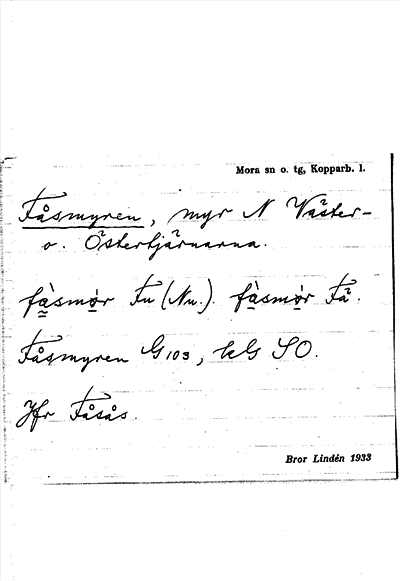 Mora sn o. tg, Kopparb. l.
Fåsmyren, myr N Väster-
o. Östertjärnarna.
fàsmǫr Fu (Nu.). fàsmǫr Fä.
Fåsmyren G 103, kG SO.
Jfr Fåsås.
Bror Lindén 1933